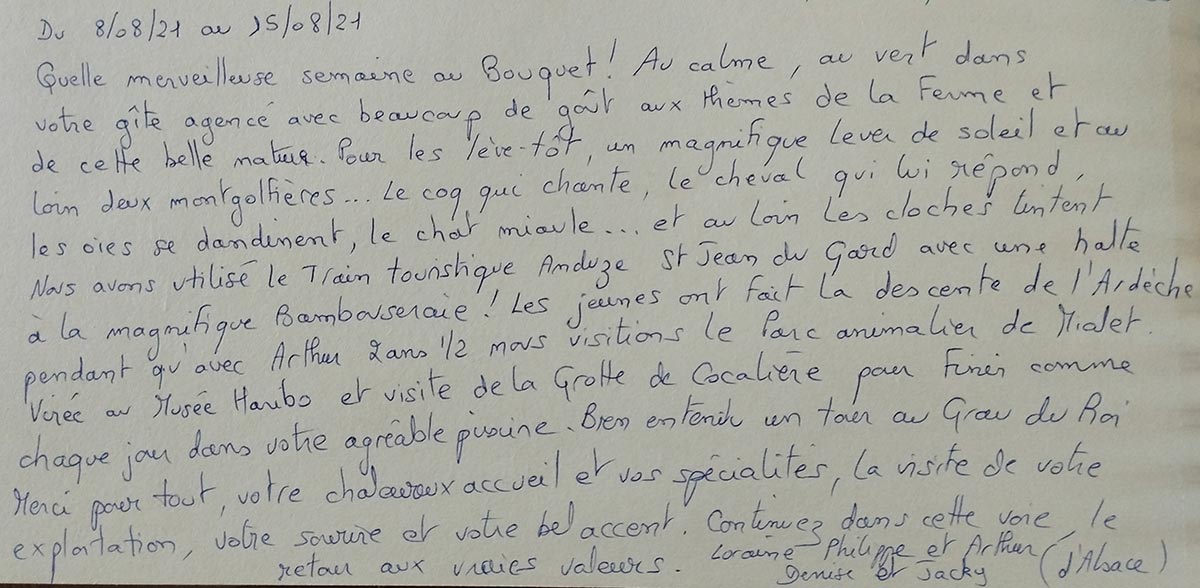 Du 8/08/21 au 15/08/21
Quelle merveilleuse semaine au Bouquet! Au calme, au vert dans
votre gîte agencé avec beaucoup de goût aux thèmes de la Ferme et
de cette belle nature. Pour les lève-tôt, un magnifique lever de soleil et au
loin deux montgolfières... Le coq qui chante, le cheval qui lui répond,
les oies se dandinent, le chat miaule... et au loin les cloches tintent
Nous avons utilisé le Train touristique Anduze St Jean du Gard avec une halte
à la magnifique Bambouseraie! Les jeunes ont fait la descente de l'Ardèche
pendant qu'avec Arthur 2ans 1/2 nous visitions le Parc animalier de Mialet.
Virée au Musée Haribo et visite de la Grotte de Cocalière pour finir comme
chaque jour dans votre agréable piscine. Bien entendu un tour au Grau du Roi
Merci pour tout, votre chaleureux accueil et vos spécialités, la visite de votre
exploitation, votre sourire et votre bel accent. Continuez dans cette voie, le
retour aux vraies valeurs. Loraine Philippe et Arthur (d'Alsace)
Denise et Jacky